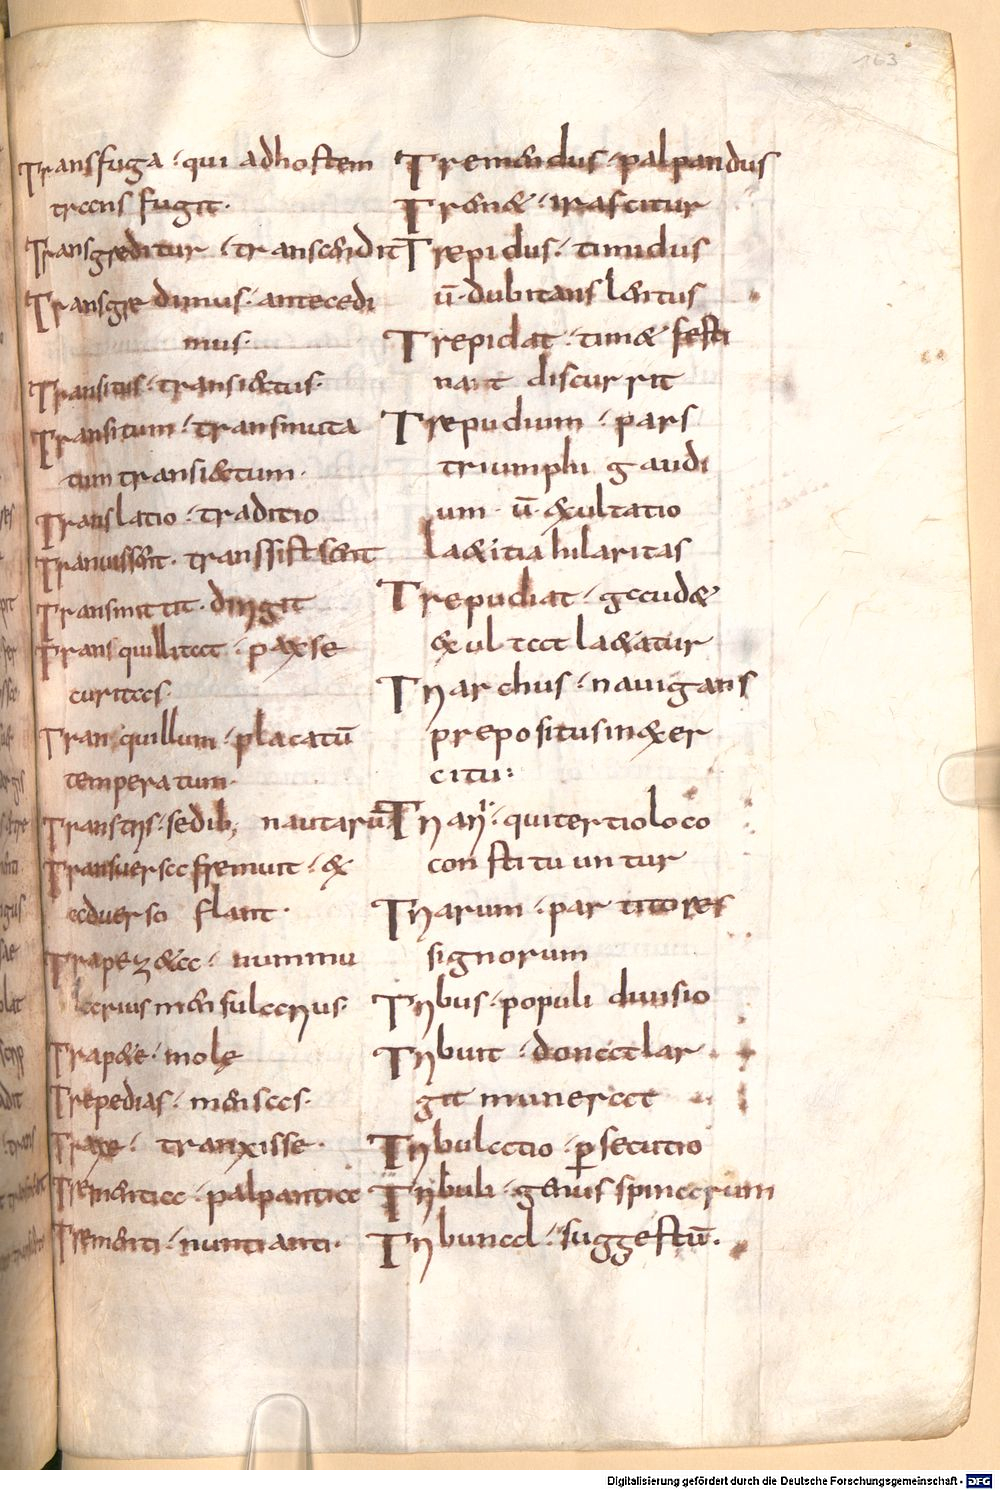 163
Transfuga · qui adhostem
trans fugit ·
Transgreditur · transcendit
Transgre dimus · antecedi
mus ·
Transitus · transi&tus ·
Transitum · transmuta
tum transi&tum ·
Translatio · traditio
Tranuissent · transsistsent
Transmittit · dirigit
Tranquillitat · paxse
curitas ·
Tranquillum · placatū
temperatum ·
Transtris · sedib; nautarū
Transuersa fremunt · &
aduerso flant ·
Trapez&a · nummu
larius mensularius ·
Trap&e · mole
Trepedias · mensas ·
Traxe · tranxisse ·
Trementia · palpantia
Trementi · nuntianti ·
Tremendus · palpandus
Tren& · irascitur
Trepidus · timidus
ū · dubitans lentus
Trepidat · tim& festi
nant discurrit
Trepudium · pars
triumphi gaudi
um · ū · exultatio
la&itia hilaritas
Trepudiat · gaud&
exultat la&atur
Triarchus · nauigans
prepositus inexer
citu :
Triarii · quitertioloco
constituuntur
Triarum · partitores
signorum
Tribus · populi diuisio
Tribuit · donat lar
git munerat
Tribulatio · persecutio
Tribuli · genus spinarum
Tribunal · suggestū ·
Digitalisierung gefördert durch die Deutsche Forschungsgemeinschaft - DFG